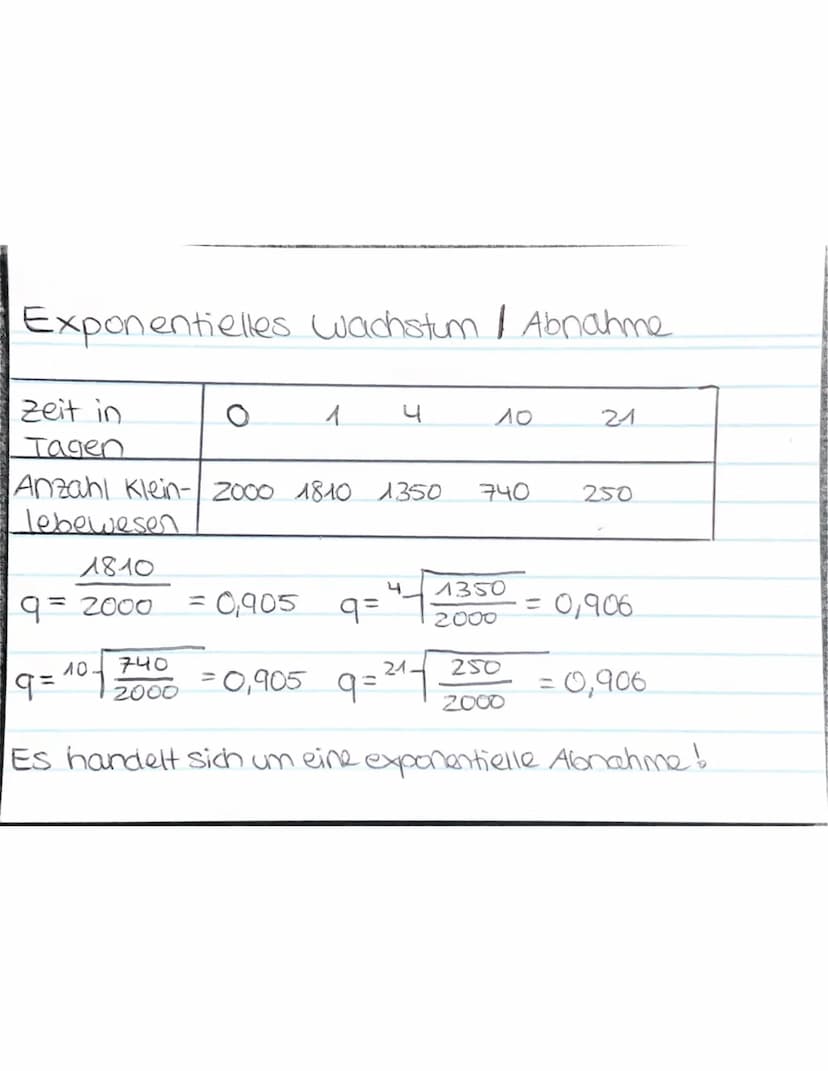 Exponentielles Wachstum / Abnahme
Zeit in Tagen 0 1 4 10 21
Anzahl Klein-lebewesen 2000 1810 1350 740 250
q = 1810/2000 = 0,905 q = ⁴√(1350/2000) = 0,906
q = ¹⁰√(740/2000) = 0,905 q = ²¹√(250/2000) = 0,906
Es handelt sich um eine exponentielle Abnahme!